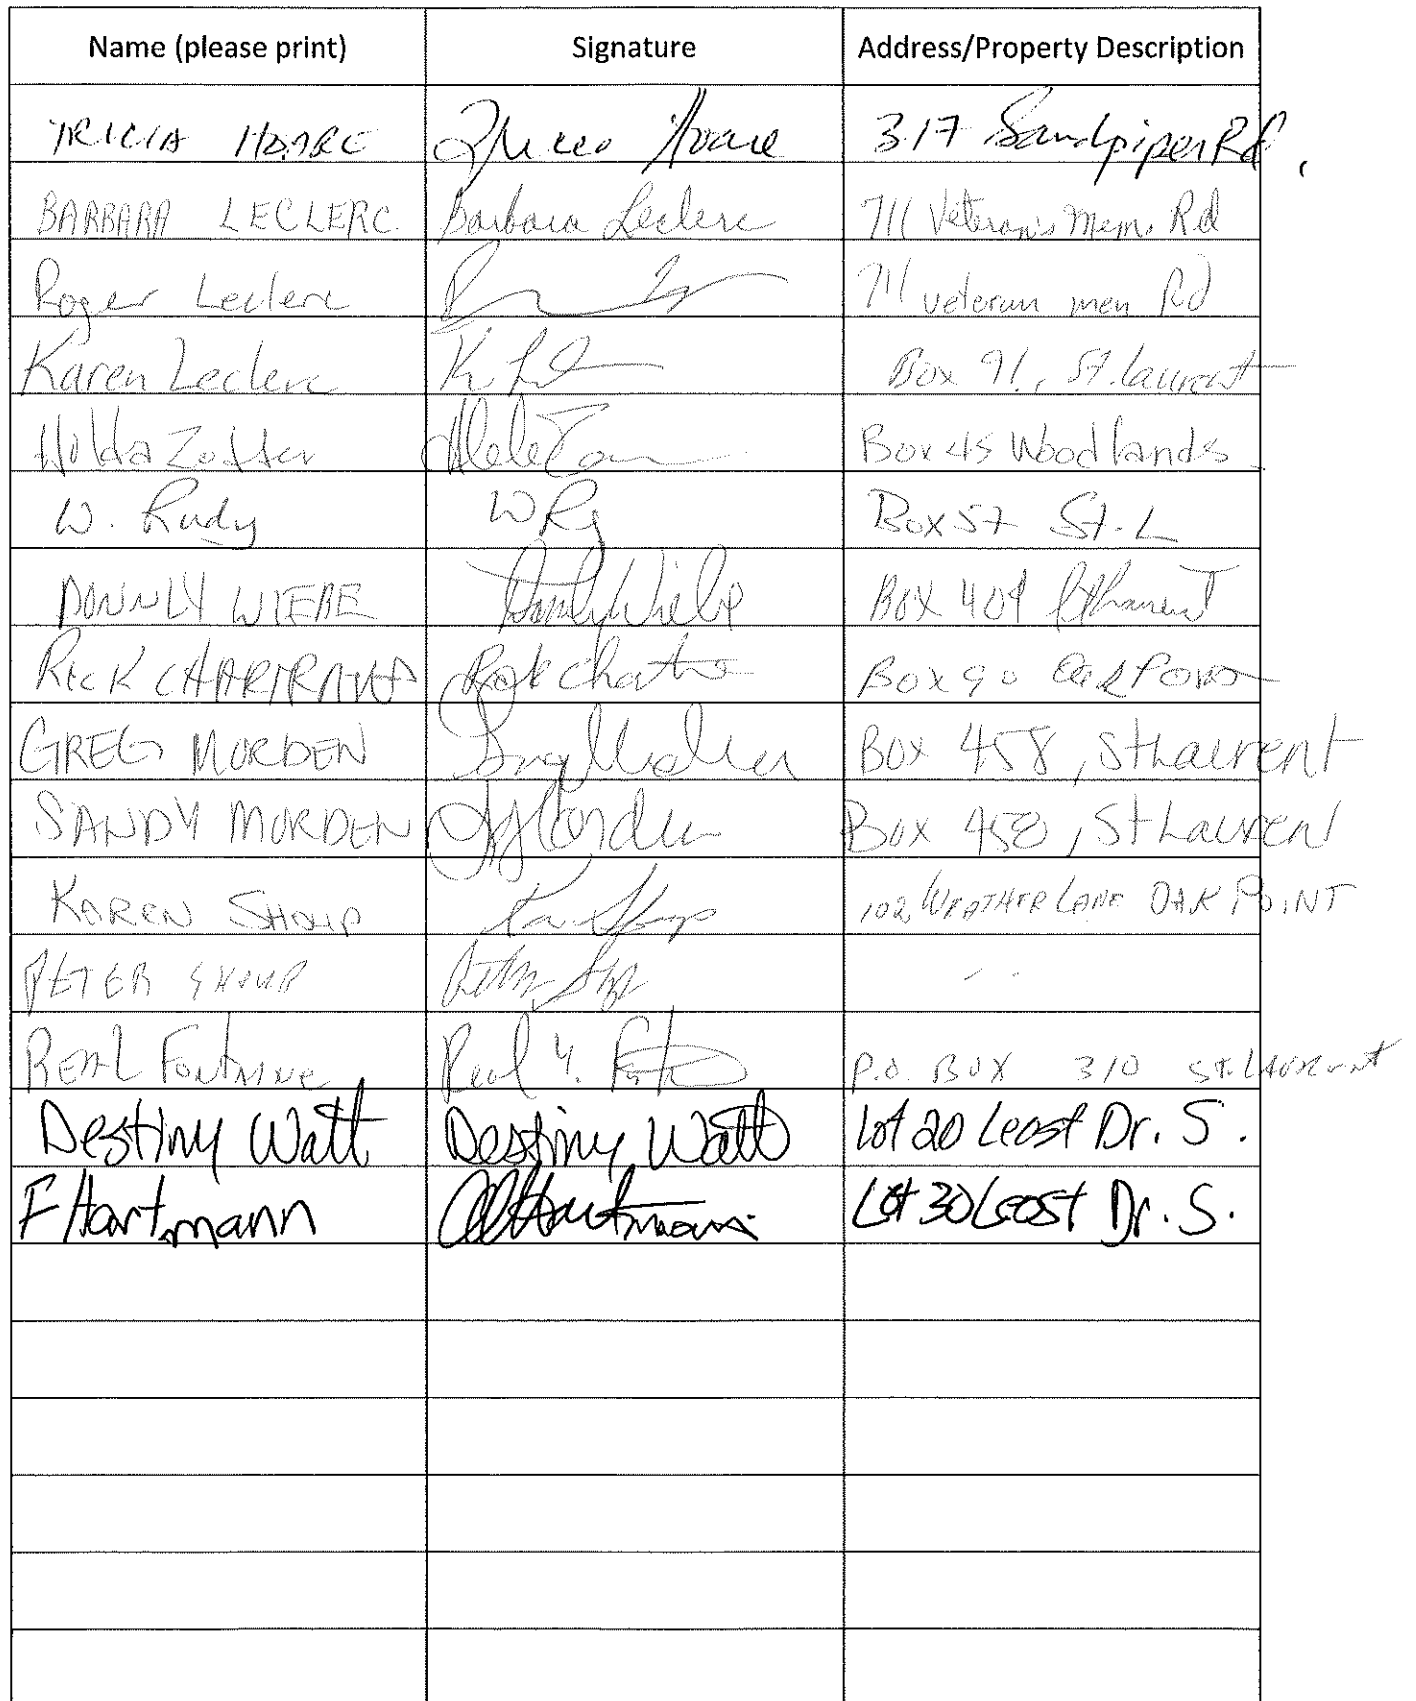 Name (please print) Signature Address/Property Description
TRICIA HOARE Hoare 317 Sandpiper Rd.
BARBARA LECLERC. Barbara Leclerc 711 Veteran's Mem. Rd
Roger Leclerc 711 veteran mem Rd
Karen Leclerc Box 91, St. laurent
Hilda Box 45 Woodlands
W. Rudy W Ry Box 57 St. L
DONNLY WIEBE Wiebe Box 409 St Laurent
RICK CHARTRAND Rick Box 90 Oak Point
GREG MORDEN Box 458, St Laurent
SANDY MORDEN Box 458, St Lauren
KAREN SHOUP 102 WEATHER LANE OAK POINT
PETER SHOUP - -
REAL FONTAINE Real Y. P.O. BOX 310 ST. LAURENT
Destiny Watt Destiny Watt Lot 20 Leost Dr. S.
F Hartmann Hartmann Lot 30 Leost Dr. S.